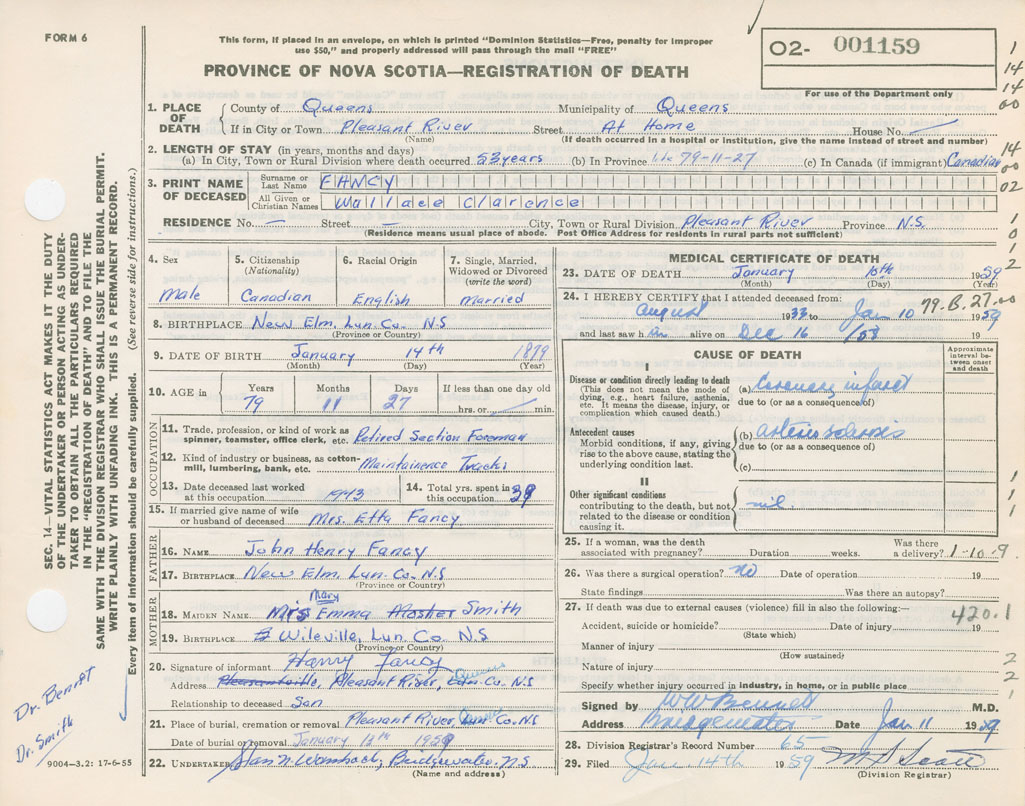 FORM 6
This form, if placed in an envelope, on which is printed "Dominion Statistics—Free, penalty for improper
use $50," and properly addressed will pass through the mail "FREE"
PROVINCE OF NOVA SCOTIA—REGISTRATION OF DEATH
O2- 001159
For use of the Department only
1
14
14
00
1. PLACE OF DEATH
County of Queens Municipality of Queens
If in City or Town Pleasant River Street At Home House No.
(Name) (If death occurred in a hospital or institution, give the name instead of street and number)
2. LENGTH OF STAY (in years, months and days)
(a) In City, Town or Rural Division where death occurred 53 years (b) In Province Life 79-11-27 (c) In Canada (if immigrant) Canadian
14
00
02
3. PRINT NAME OF DECEASED
Surname or Last Name FANCY
All Given or Christian Names Wallace Clarence
RESIDENCE No. — Street — City, Town or Rural Division Pleasant River Province N.S.
(Residence means usual place of abode. Post Office Address for residents in rural parts not sufficient)
1
0
1
2
SEC. 14—VITAL STATISTICS ACT MAKES IT THE DUTY
OF THE UNDERTAKER OR PERSON ACTING AS UNDER-
TAKER TO OBTAIN ALL THE PARTICULARS REQUIRED
IN THE "REGISTRATION OF DEATH" AND TO FILE THE
SAME WITH THE DIVISION REGISTRAR WHO SHALL ISSUE THE BURIAL PERMIT.
WRITE PLAINLY WITH UNFADING INK. THIS IS A PERMANENT RECORD.
Every item of information should be carefully supplied. (See reverse side for instructions.)
4. Sex
Male
5. Citizenship
(Nationality)
Canadian
6. Racial Origin
English
7. Single, Married,
Widowed or Divorced
(write the word)
Married
8. BIRTHPLACE New Elm, Lun. Co. N.S
(Province or Country)
9. DATE OF BIRTH January 14th 1879
(Month) (Day) (Year)
10. AGE in
Years Months Days If less than one day old
79 11 27 hrs. or min.
OCCUPATION
11. Trade, profession, or kind of work as
spinner, teamster, office clerk, etc. Retired Section Foreman
12. Kind of industry or business, as cotton-
mill, lumbering, bank, etc. Maintainence Tracks
13. Date deceased last worked
at this occupation 1943
14. Total yrs. spent in
this occupation 39
15. If married give name of wife
or husband of deceased Mrs. Etta Fancy
FATHER
16. NAME John Henry Fancy
17. BIRTHPLACE New Elm, Lun. Co. N.S
(Province or Country)
MOTHER
Mary
18. MAIDEN NAME Mrs Emma Mosher Smith
19. BIRTHPLACE Wileville, Lun. Co N.S
(Province or Country)
20. Signature of informant Harry Fancy
Queens
Address Pleasantville, Pleasant River, Lun. Co. N.S
Relationship to deceased Son
21. Place of burial, cremation or removal Pleasant River Queens Lun Co. N.S
Date of burial or removal January 12th 1959
22. UNDERTAKER Wambach, Bridgewater, N.S
(Name and address)
Dr. Bennet
Dr. Smith
9004—3.2: 17-6-55
MEDICAL CERTIFICATE OF DEATH
23. DATE OF DEATH January 10th 1959
(Month) (Day) (Year)
24. I HEREBY CERTIFY that I attended deceased from:
79.B.27.00
August 1933 to Jan 10 1959
and last saw him alive on Dec 16 /58
CAUSE OF DEATH
Approximate
interval be-
tween onset
and death
I
Disease or condition directly leading to death
(This does not mean the mode of
dying, e.g., heart failure, asthenia,
etc. It means the disease, injury, or
complication which caused death.)
(a) Coronary infarct
due to (or as a consequence of)
Antecedent causes
Morbid conditions, if any, giving
rise to the above cause, stating the
underlying condition last.
(b) arteriosclerosis
due to (or as a consequence of)
(c)
II
Other significant conditions
contributing to the death, but not
related to the disease or condition
causing it.
nil.
1
1
1
25. If a woman, was the death
associated with pregnancy? Duration weeks. Was there
a delivery? 1-10.9.
26. Was there a surgical operation? No Date of operation 19
State findings Was there an autopsy?
27. If death was due to external causes (violence) fill in also the following:—
420.1
Accident, suicide or homicide? Date of injury 19
(State which)
Manner of injury
(How sustained)
Nature of injury
Specify whether injury occurred in industry, in home, or in public place
2
2
1
Signed by W W Bennett M.D.
Address Bridgewater Date Jan 11 1959
28. Division Registrar's Record Number 65
29. Filed Jan 14th 1959 Scott
(Division Registrar)